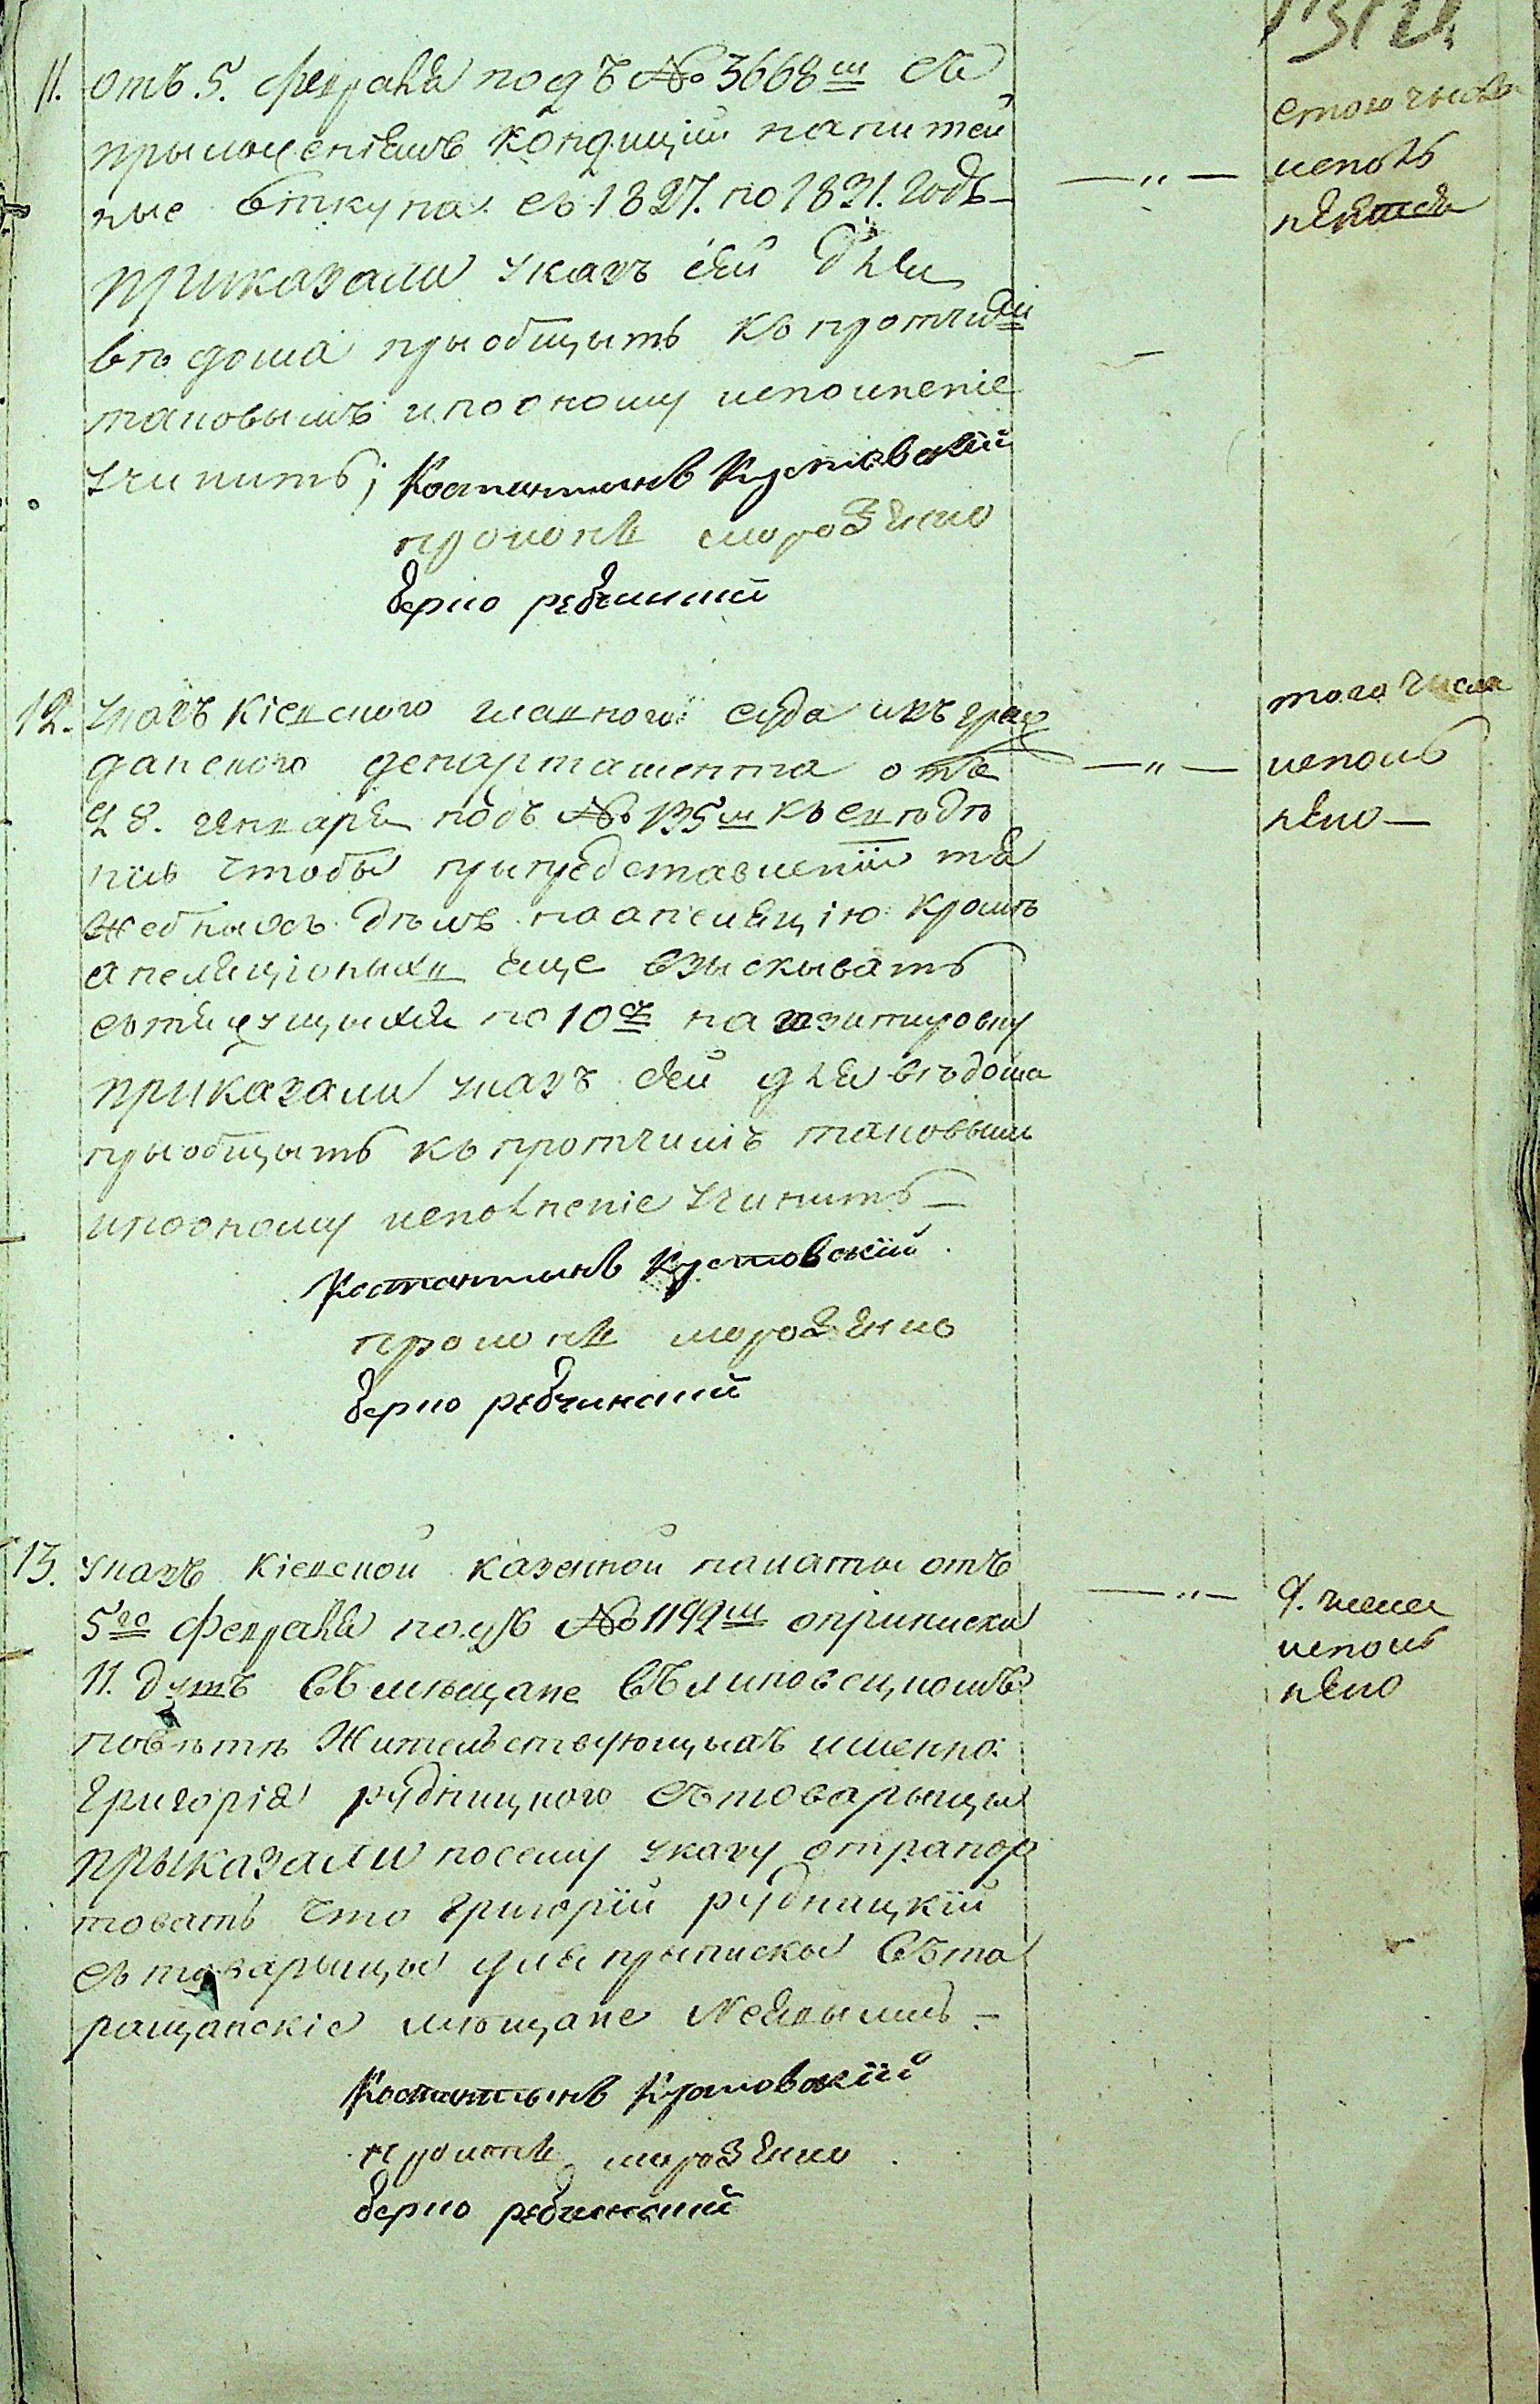 11. отъ 5. февраля подъ № 3668м съ
приложеніемъ кондицій на питей
ные откупа съ 1827. по 1831. годъ
приказали указъ сей для
вѣдома приобщыть къ протчимъ
таковымъ и по оному исполненіе
учинить;
Костантынъ Кустовскій
прокопъ морозенко
верно ребчинский
стого числа
исполь
няется
12. указъ Кіевского главного суда изъ граж
данского департамента отъ
28. генваря подъ № 135м къ свѣдѣ
нію чтобы при представленіи тя
жебныхъ дѣлъ на апеляцію кромѣ
апеляціоныхъ еще взыскывать
съ тяжущыхся по 10 на
приказали указъ сей для вѣдома
приобщыть къ протчимъ таковым
и по оному исполненіе учинить
Костантынъ Кустовскій
прокопъ морозенко
верно ребчинский
того числа
исполь
нено
13. указъ Кіевской казенной палаты отъ
5го февраля подъ № 1192м о приписки
11. душъ въ мѣщане въ липовецкомъ
повѣтѣ жительствующыхъ именно:
Григорія рудницкого съ товарыщы
прыказали по сему указу отрапор
товать что Григорій рудницкій
съ товарыщы для прыписки въ та
ращанскіе мѣщане не
Костантынъ Кустовскій
прокопъ морозенко
верно ребчинский
9. числа
исполь
нено